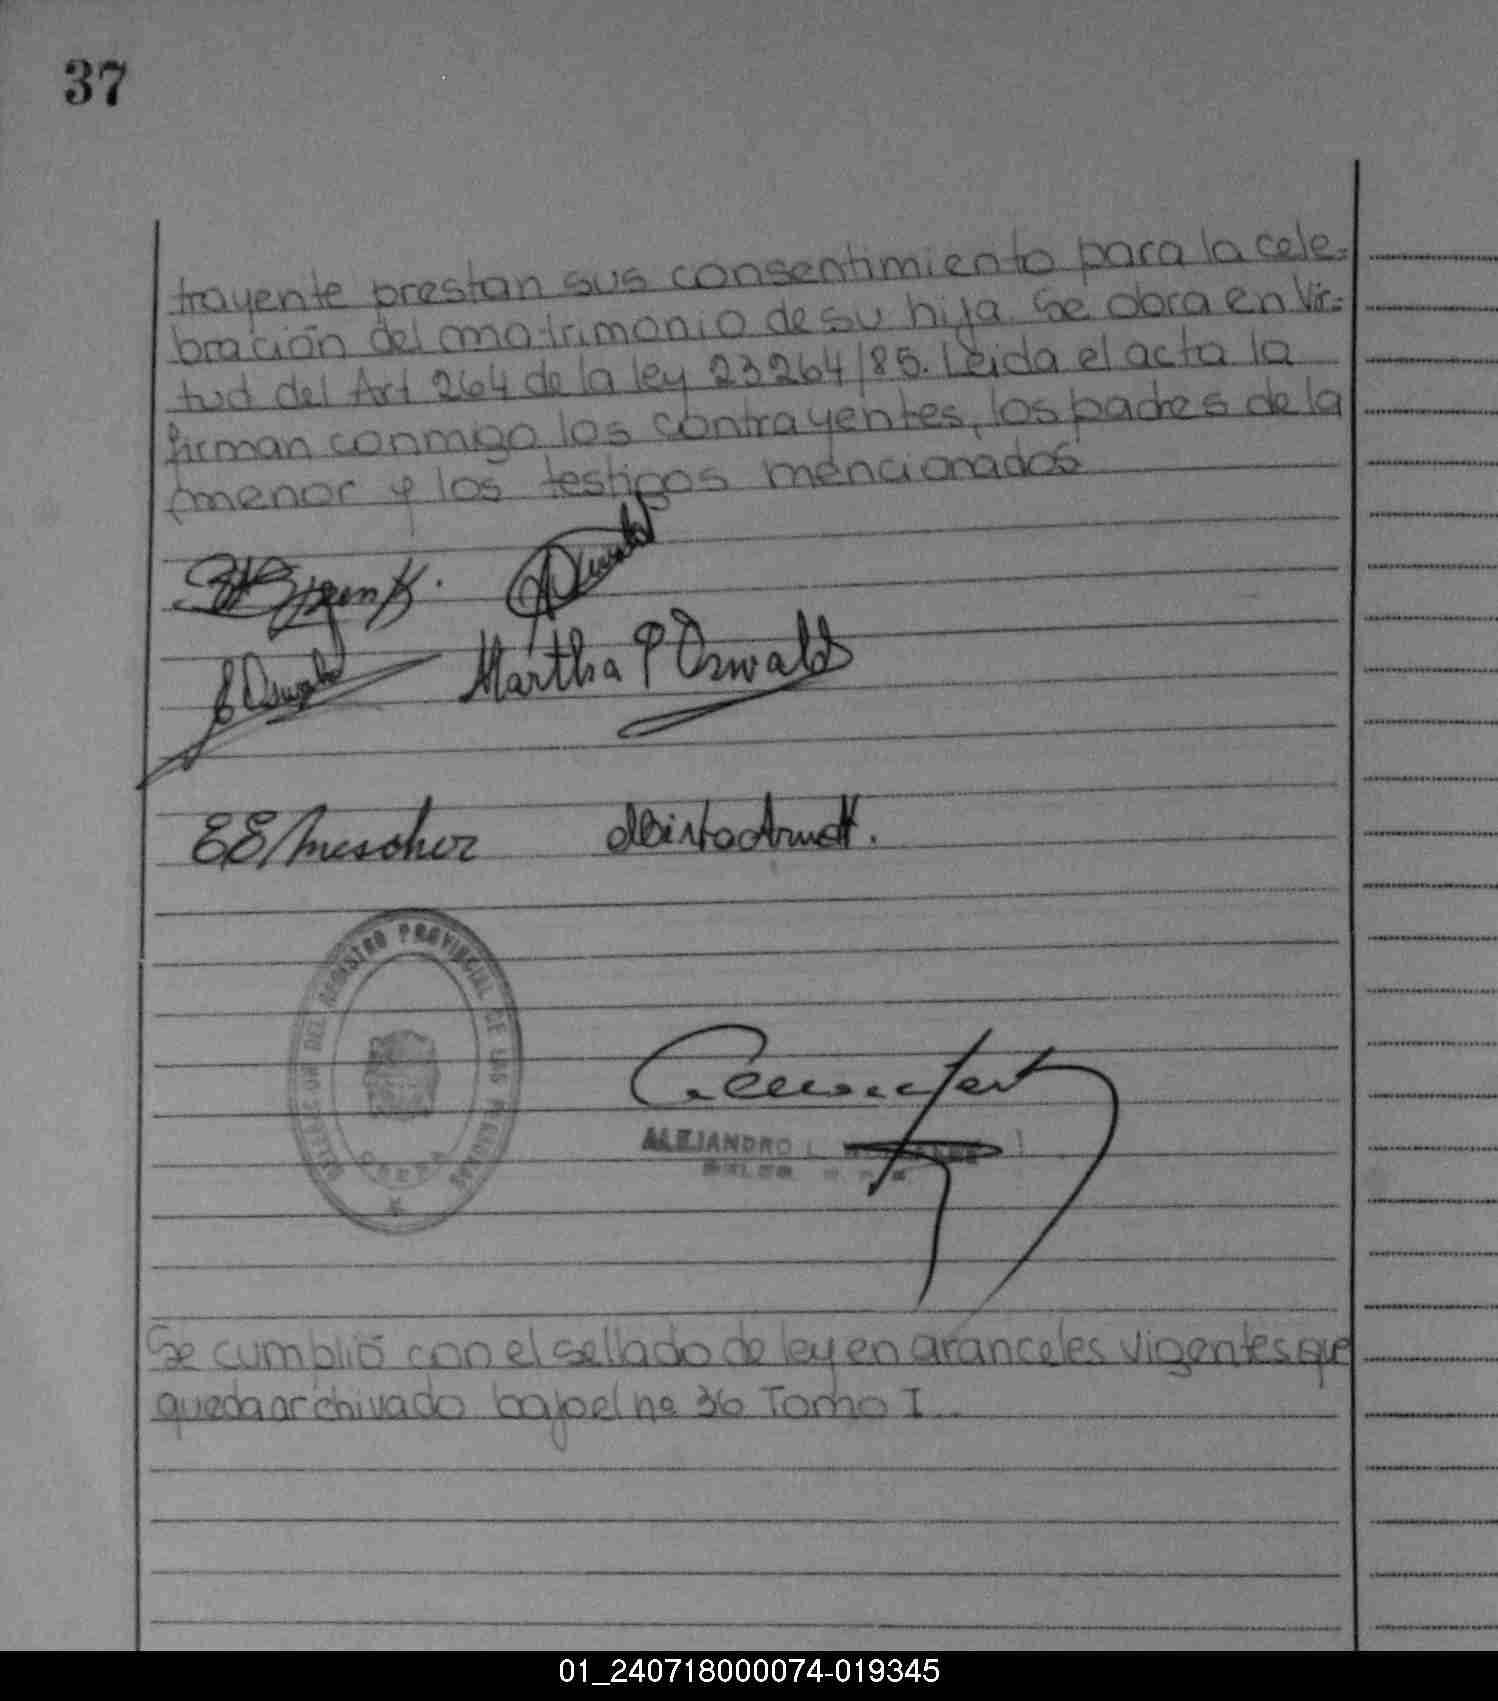 37
trayente prestan sus consentimiento para la cele=
bración del matrimonio de su hija. Se obra en Vir=
tud del Art 264 de la ley 23264/85. Leida el acta la
firman conmigo los contrayentes, los padres de la
menor y los testigos mencionados
Oswald
Oswald
Martha P Oswald
Mirta Arndt.
DIRECCION DEL REGISTRO PROVINCIAL DE LAS PERSONAS
ALEJANDRO L
Se cumplió con el sellado de ley en aranceles vigentes que
queda archivado bajo el no 36 Tomo I..
01_240718000074-019345